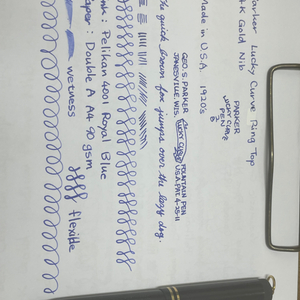 Parker Lucky Curve Ring Top
14K Gold Nib
PARKER
LUCKY CURVE
PEN
Made in U.S.A. 1920's
GEO. S. PARKER FOUNTAIN PEN
JANESVILLE WIS. LUCKY CURVE U.S.A. PAT. 4-25-11
The quick brown fox jumps over the lazy dog.
Ink: Pelikan 4001 Royal Blue
Paper: Double A A4 80 gsm
wetness
flexible